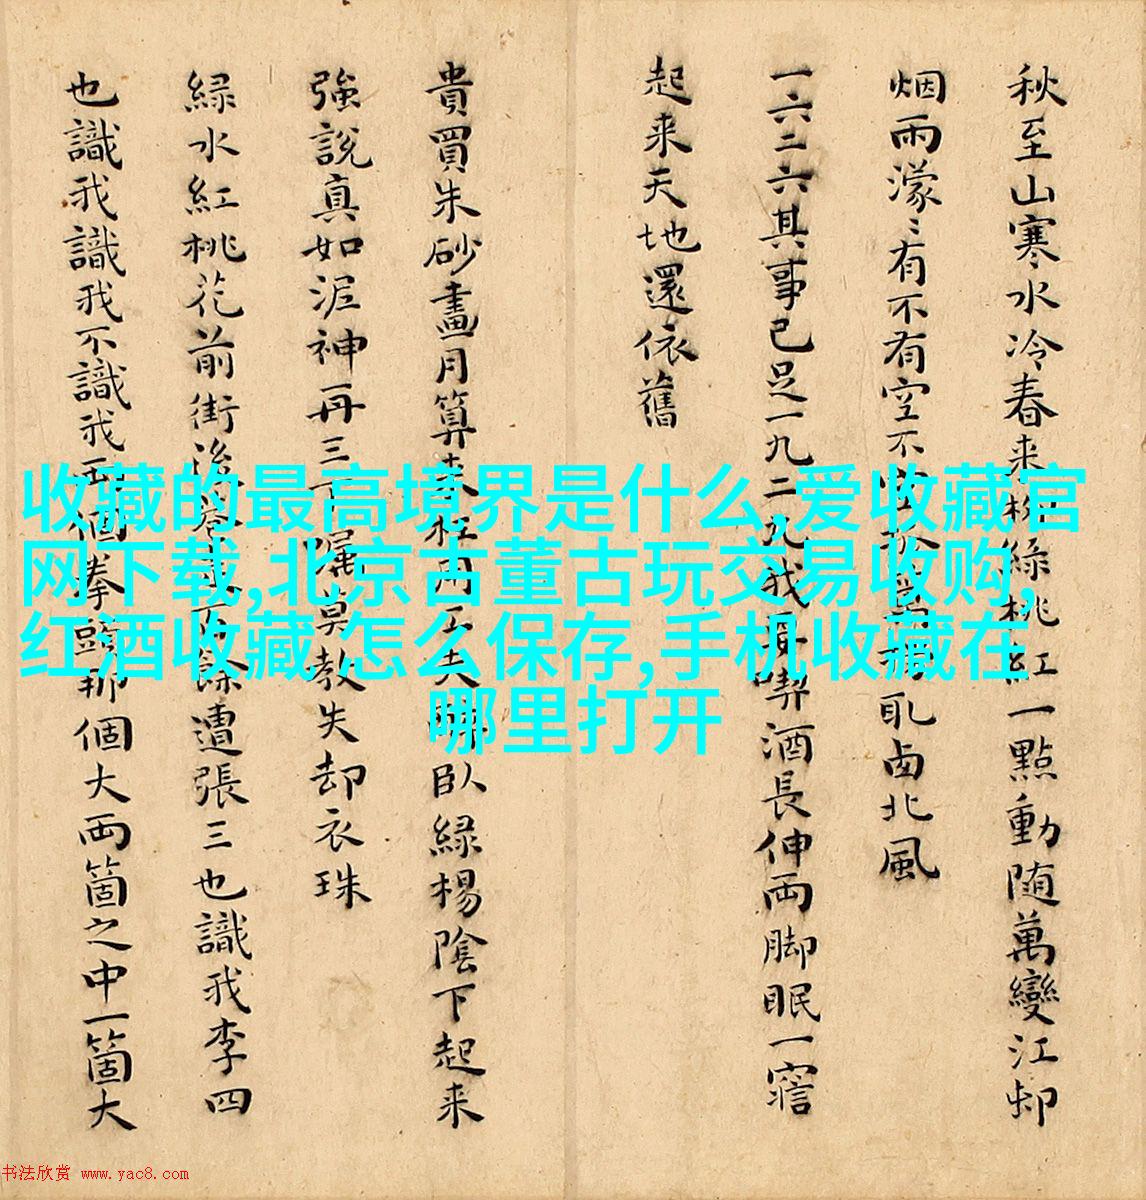 秋至山寒水冷春来柳綠桃紅一點動随萬變江邨
烟雨濛〻有不有空不空
乿卥北風
一六二六其事已足一九二九我要喫酒長伸両脚眠一寤
起来天地還依舊
貴買朱砂畫月算来枉用工夫醉臥緑楊陰下起来
強說真如泥神再三
囑莫教失却衣珠
緑水紅桃花前街後巷
餘遭張三也識我李四
也識我識我不識我両個拳頭那個大両箇之中一箇大
收藏的最高境界是什么,爱收藏官
网下载,北京古董古玩交易收购,
红酒收藏 怎么保存,手机收藏在
哪里打开
书法欣赏 www.yac8.com